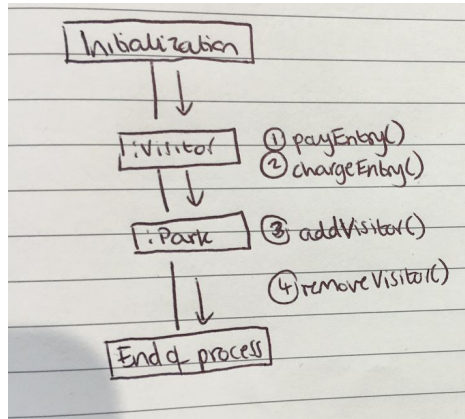 Initialization
:Visitor
① payEntry()
② chargeEntry()
:Park
③ addVisitor()
④ removeVisitor()
End of process